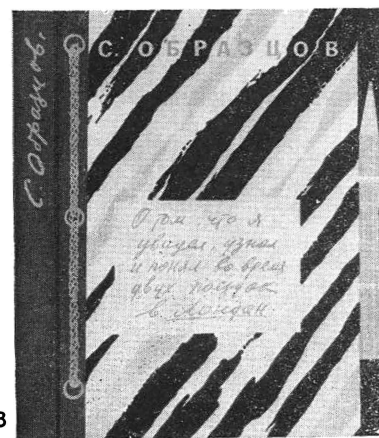 С. Образцов.
С. ОБРАЗЦОВ
О том, что я
увидел, узнал
и понял во время
двух поездок
в Лондон
3